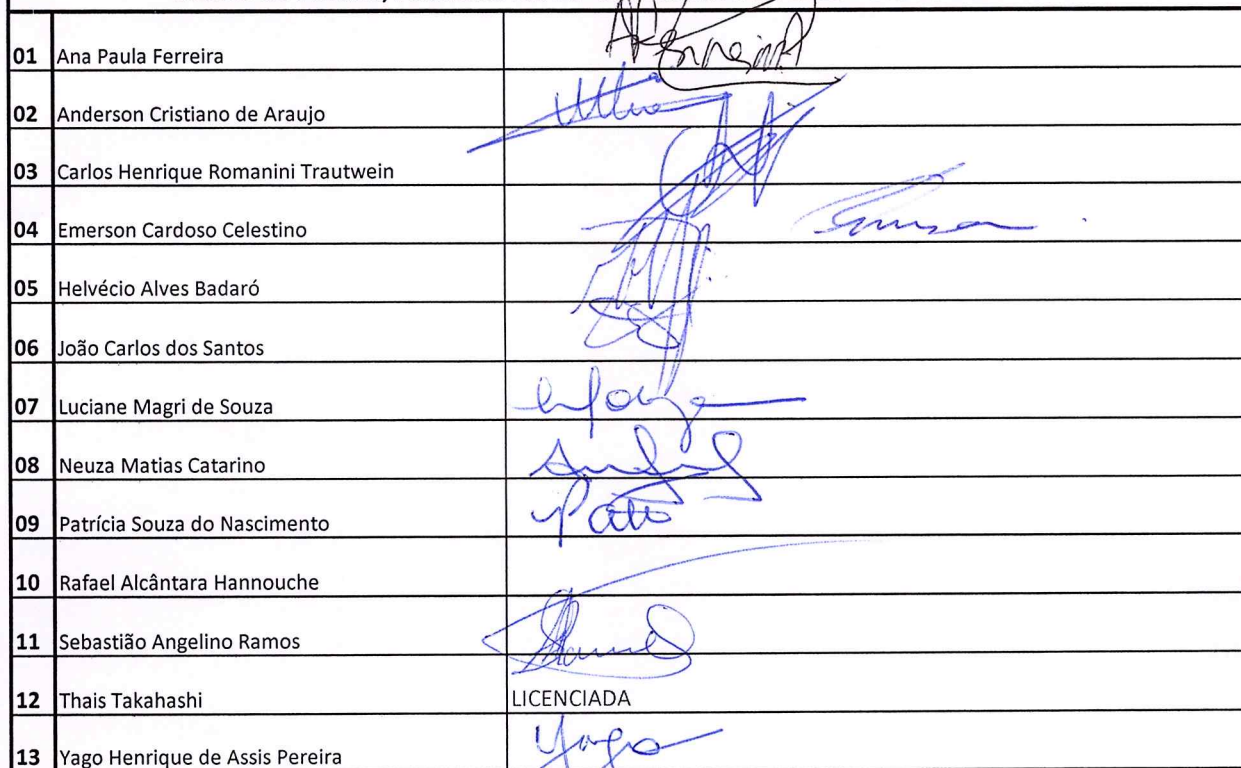 01 Ana Paula Ferreira
02 Anderson Cristiano de Araujo
03 Carlos Henrique Romanini Trautwein
04 Emerson Cardoso Celestino
05 Helvécio Alves Badaró
06 João Carlos dos Santos
07 Luciane Magri de Souza
08 Neuza Matias Catarino
09 Patrícia Souza do Nascimento
10 Rafael Alcântara Hannouche
11 Sebastião Angelino Ramos
12 Thais Takahashi LICENCIADA
13 Yago Henrique de Assis Pereira Yago